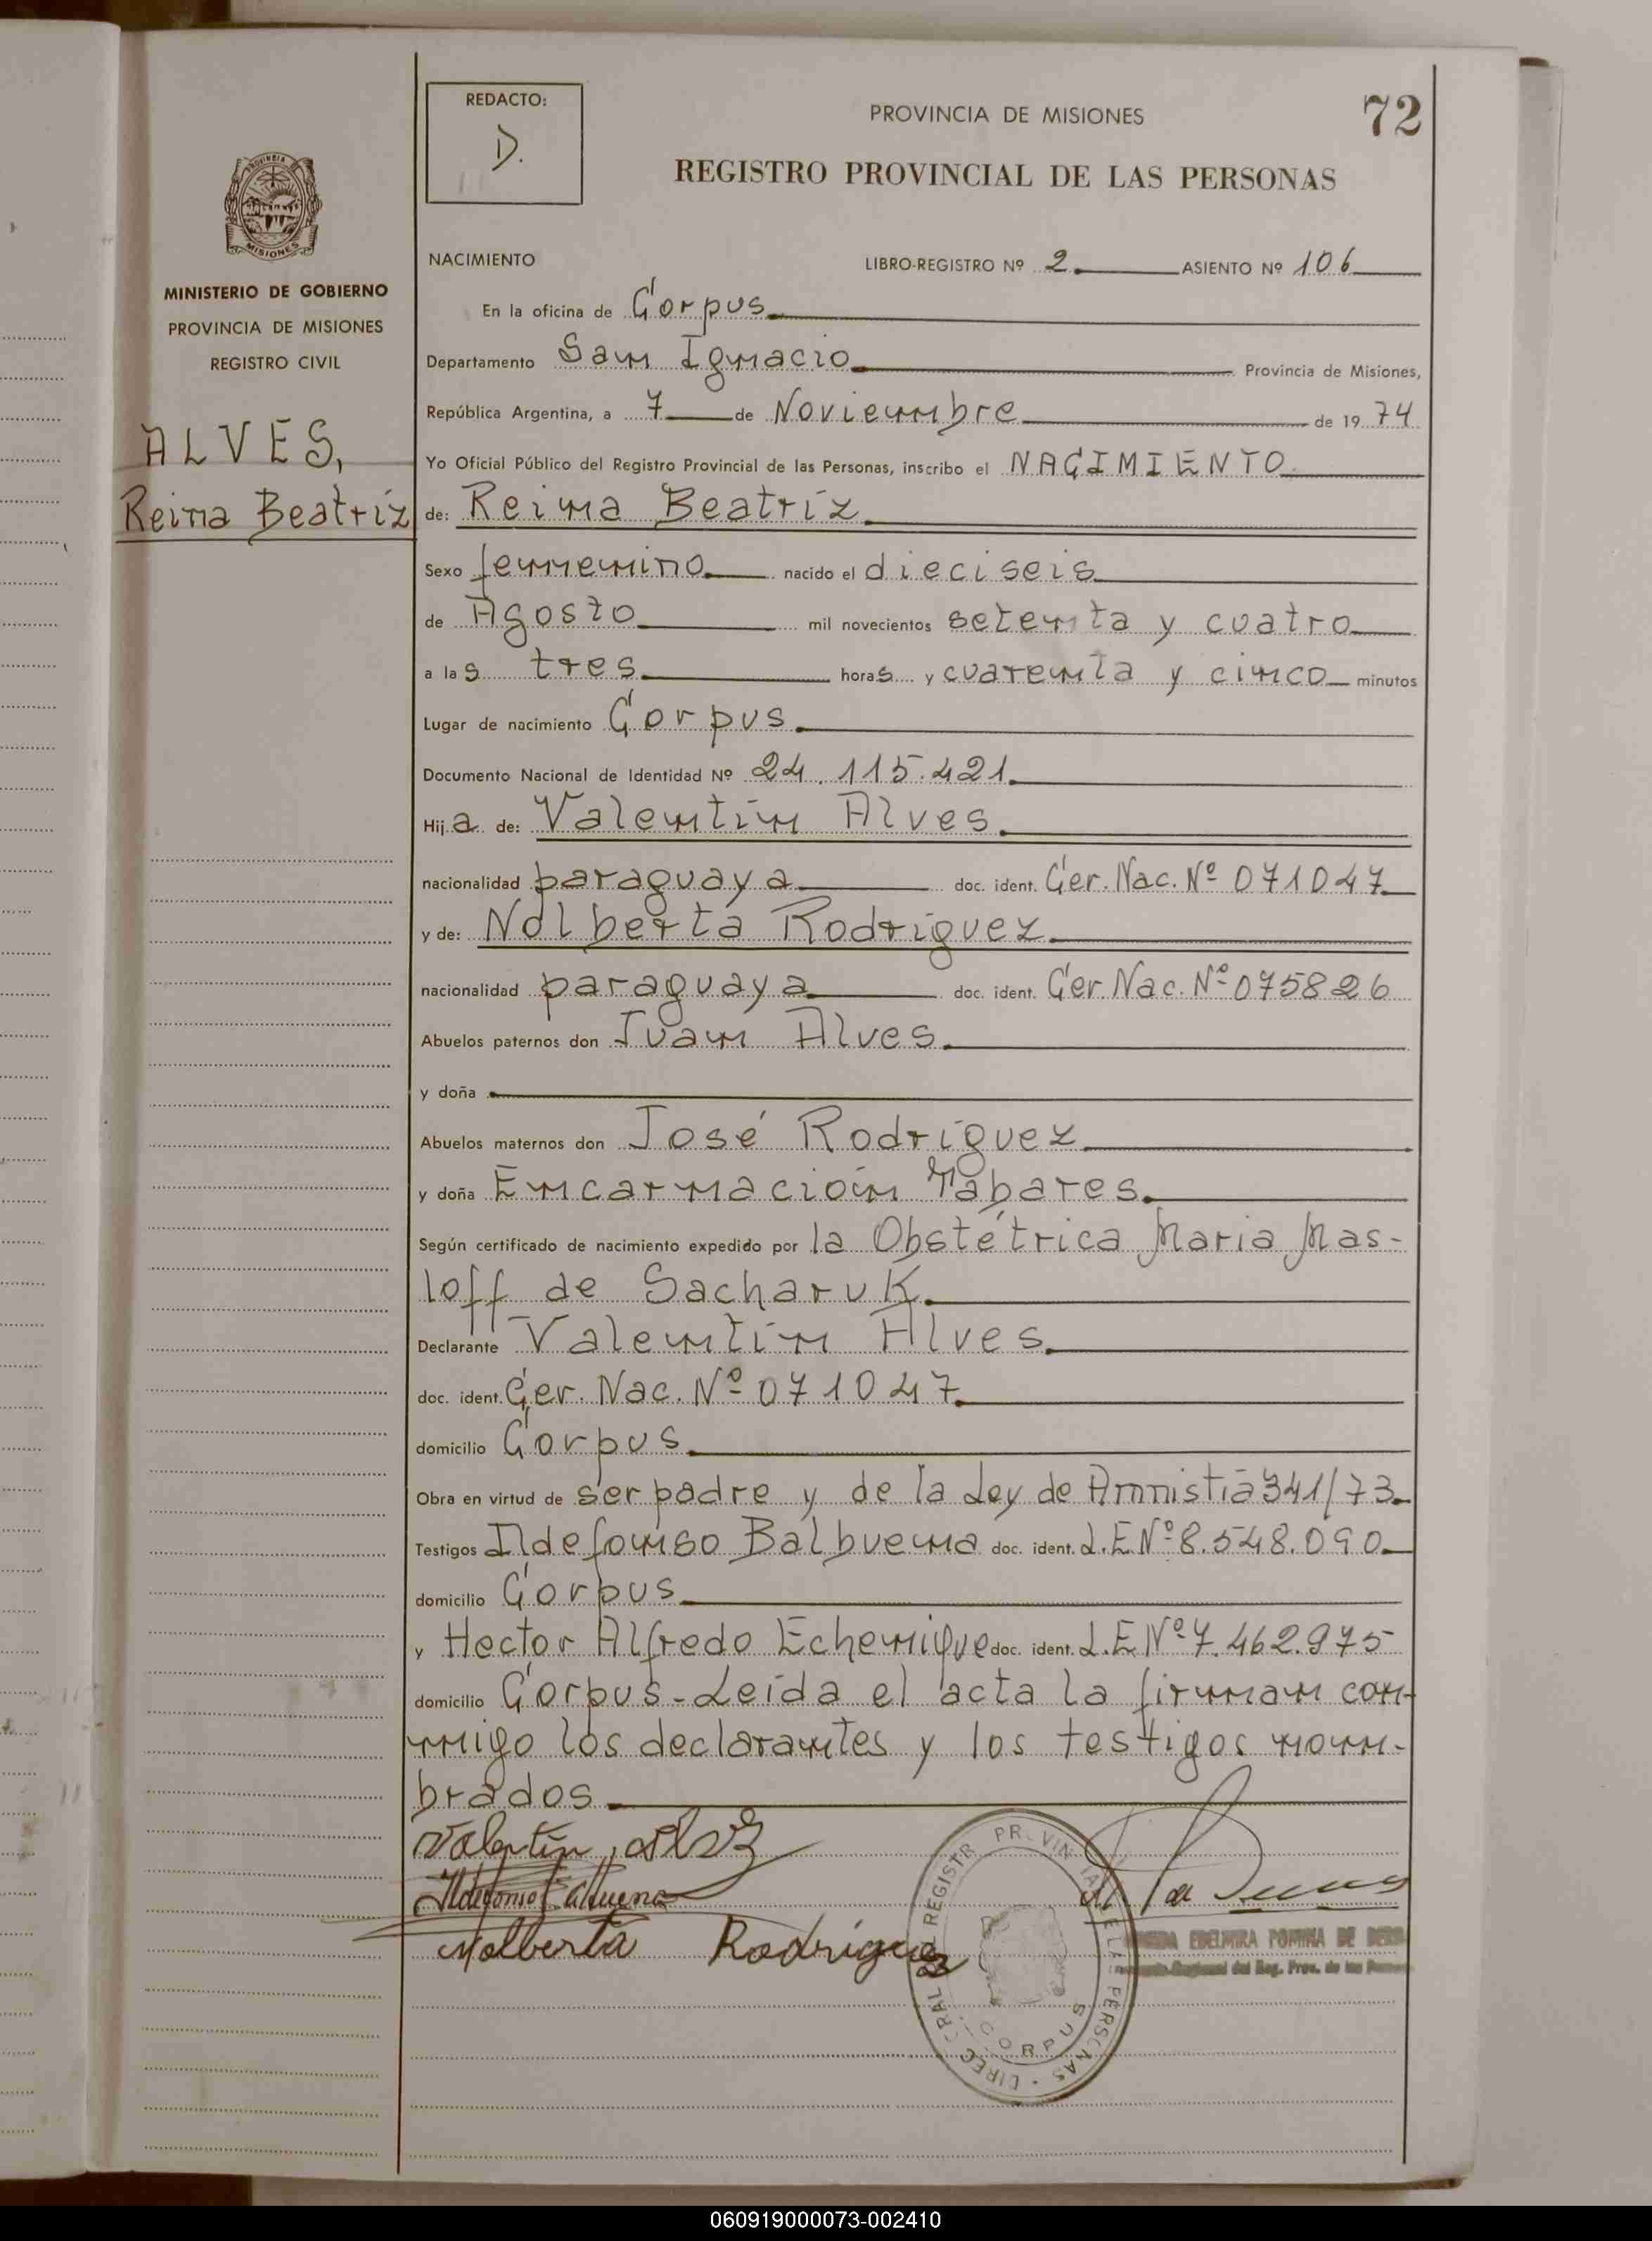 72
REDACTO:
D.
PROVINCIA DE MISIONES
REGISTRO PROVINCIAL DE LAS PERSONAS
MISIONES
MINISTERIO DE GOBIERNO
PROVINCIA DE MISIONES
REGISTRO CIVIL
ALVES,
Reina Beatríz
NACIMIENTO LIBRO-REGISTRO Nº 2. ASIENTO Nº 106
En la oficina de Corpus.
Departamento San Ignacio. Provincia de Misiones,
República Argentina, a 7 de Noviembre de 1974
Yo Oficial Público del Registro Provincial de las Personas, inscribo el NACIMIENTO
de: Reina Beatríz.
Sexo femenino nacido el dieciseis
de Agosto mil novecientos setenta y cuatro
a las tres. horas y cuarenta y cinco minutos
Lugar de nacimiento Corpus.
Documento Nacional de Identidad Nº 24.115.421.
Hija de: Valentín Alves.
nacionalidad paraguaya doc. ident. Cer. Nac. Nº 071047
y de: Nolberta Rodríguez.
nacionalidad paraguaya doc. ident. Cer. Nac. Nº 075826
Abuelos paternos don Juan Alves.
y doña
Abuelos maternos don José Rodríguez
y doña Encarnación Tabares.
Según certificado de nacimiento expedido por la Obstétrica Maria Mas-
loff de Sacharuk.
Declarante Valentín Alves.
doc. ident. Cer. Nac. Nº 071047.
domicilio Corpus.
Obra en virtud de ser padre y de la Ley de Amnistía 341/73.
Testigos Ildefonso Balbuena doc. ident. L.E Nº 8.548.090.
domicilio Corpus
y Hector Alfredo Echenique doc. ident. L.E Nº 7.462.975
domicilio Corpus-Leída el acta la firman con-
migo los declarantes y los testigos nom-
brados.
Valentin Alvz
Ildefonso Balbuena
Nolberta Rodriguez
CORPUS
060919000073-002410